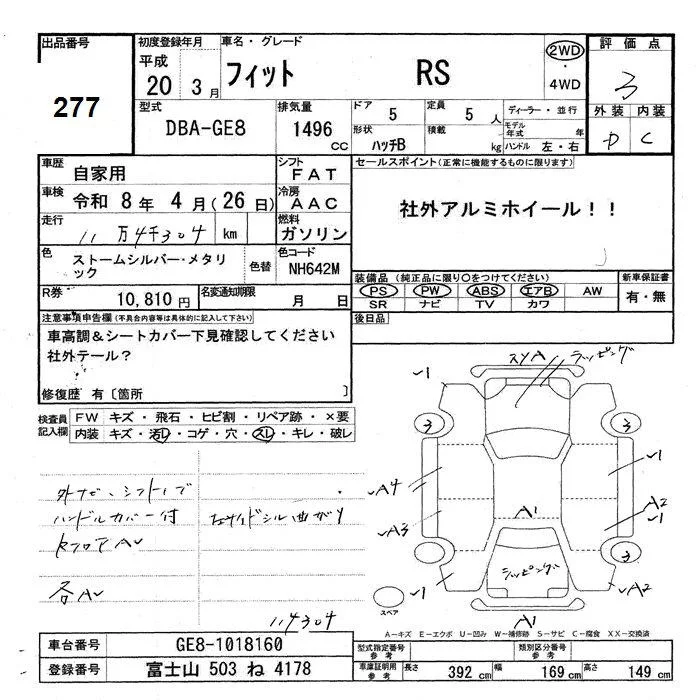 出品番号
277
初度登録年月
平成
20年 3月
車名・グレード
フィット RS
2WD
・
4WD
評価点
3
外装 内装
D C
型式
DBA-GE8
排気量
1496 CC
ドア 5
定員 5 人
ディーラー・並行
形状 ハッチB
積載 kg
モデル年式 年
ハンドル 左・右
車歴 自家用
シフト FAT
車検 令和 8年 4月(26日)
冷房 AAC
走行 11万4千304 km
燃料 ガソリン
色 ストームシルバー・メタリック
色替
色コード NH642M
R券 10,810円
名変通知期限 月 日
セールスポイント(正常に機能するものに限ります)
社外アルミホイール!!
装備品 (純正品に限り○をつけてください)
PS PW ABS エアB AW
SR ナビ TV カワ
新車保証書
有・無
後日品
注意事項申告欄(不具合内容等は具体的に記入して下さい)
車高調&シートカバー下見確認してください
社外テール?
修復歴 有〔箇所 〕
検査員記入欄
FW キズ・飛石・ヒビ割・リペア跡・×要
内装 キズ・汚レ・コゲ・穴・スレ・キレ・破レ
外ナビ、シフトノブ
ハンドルカバー付
左サイドシル曲がり
各A
114304
ラッピング
1
3
3
A4
1
A1
A2
1
A3
3
ラッピング
1
A2
スペア
A1
A-キズ E-エクボ U-凹み W-補修跡 S-サビ C-腐食 XX-交換済
車台番号 GE8-1018160
登録番号 富士山 503 ね 4178
型式指定番号 参考
類別区分番号 参考
車庫証明用 参考
長さ 392 cm
幅 169 cm
高さ 149 cm